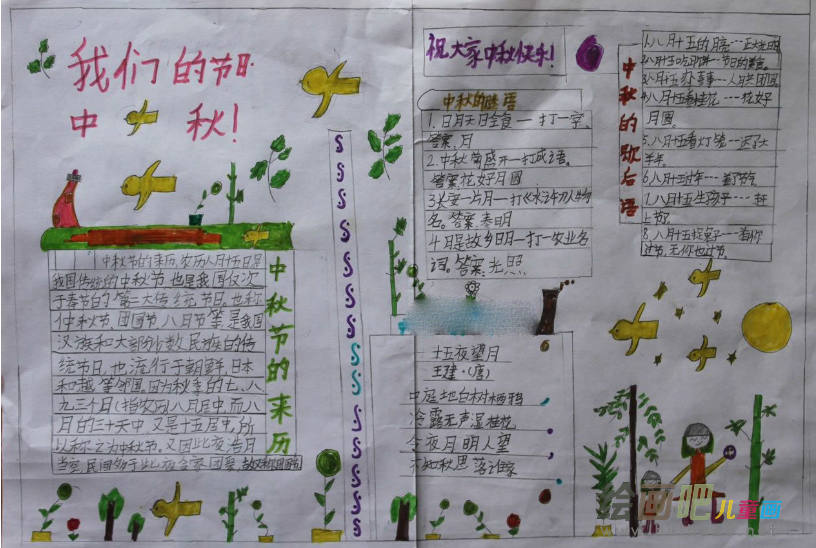 我们的节日
中 秋!
中秋节的来历,农历八月十五日是
我国传统的中秋节,也是我国仅次
于春节的第二大传统节日,也称
仲秋节、团圆节、八日节等是我国
汉族和大部分少数民族的传
统节日,也流行于朝鲜、日本
和越等邻国。因为秋季的七、八
九三个日(指农历)八月居中,而八
月的三十天中,又是十五居中,所
以称之为中秋节。又因此夜浩月
当空,民间多于此夜合家团聚,故又称团圆
中秋节的来历
祝大家中秋快乐!
中秋的谜语
1.日月天日全食一打一字。
答案:月
2.中秋菊盛开一打成语。
答案:花好月圆
3长安一片月一打《水浒》人物
名。答案:秦明
4月是故乡明一打一农业名
词。答案:光照
十五夜望月
王建·(唐)
中庭地白树栖鸦
冷露无声湿桂花
今夜月明人望
不知秋思落谁家
中秋的歇后语
1.八月十五的月亮---正光明
2.八月十五吃月饼---节日的美食。
3.八月十五办喜事---人月共团圆
4.八月十五看桂花---花好
月圆。
5.八月十五看灯笼---迟了大
半年。
6.八月十五过年---差节气
7.八月十五生孩子---赶
上节了
8.八月十五捉兔子---有你
过节,无你也过节。
绘画吧儿童画